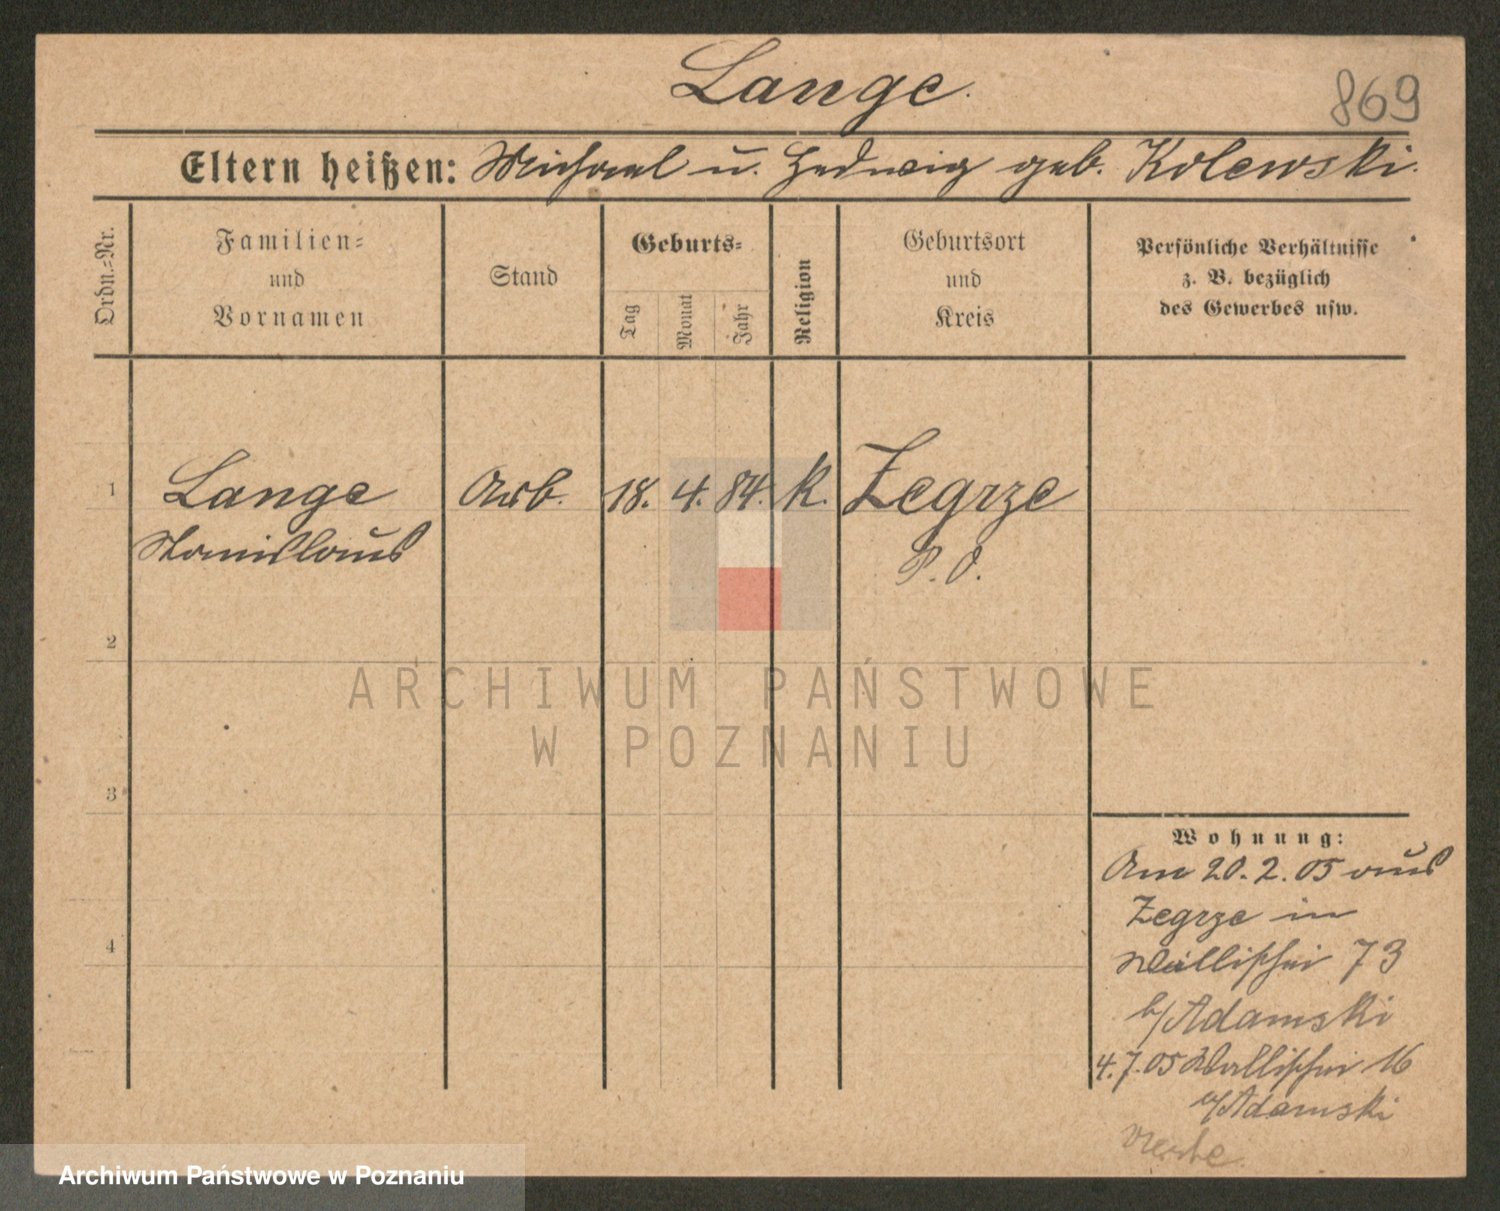 Lange.
869
Eltern heißen: Michael u. Hedwig geb. Kolewski.
Ordn.=Nr.
Familien=
und
Vornamen
Stand
Geburts=
Tag
Monat
Jahr
Religion
Geburtsort
und
Kreis
Persönliche Verhältnisse
z. B. bezüglich
des Gewerbes usw.
1
Lange
Stanislaus
Arb.
18.
4.
84.
k.
Zegrze
P. O.
2
3
4
Wohnung:
Am 20. 2. 05 aus
Zegrze in
Wallischei 73
b/Adamski
4. 7. 05 Wallischei 16
b/Adamski
ARCHIWUM PAŃSTWOWE
W POZNANIU
Archiwum Państwowe w Poznaniu